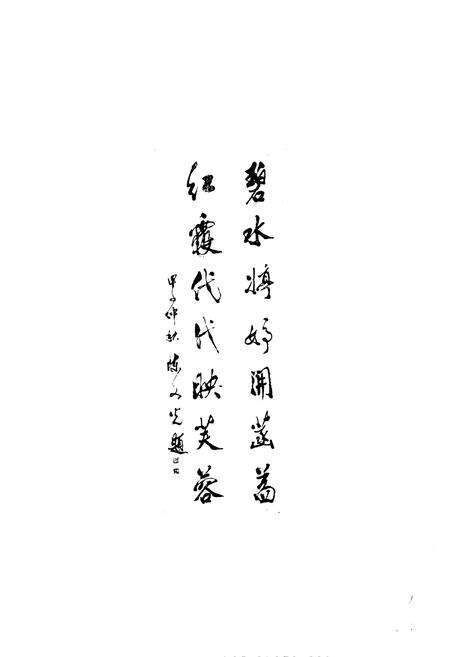 碧水婷婷開菡萏
紅霞代代映芙蓉
甲子仲秋 陳文光題